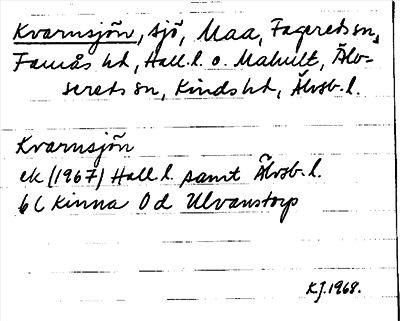 Kvarnsjön, sjö, Maa, Fagereds sn,
Faurås hd, Hall.l. o. Mahult, Älv-
sereds sn, Kinds hd, Älvsb.l.
Kvarnsjön
ek (1967) Hall l. samt Älvsb.l.
6C Kinna 0d Ulvanstorp
KJ.1968.